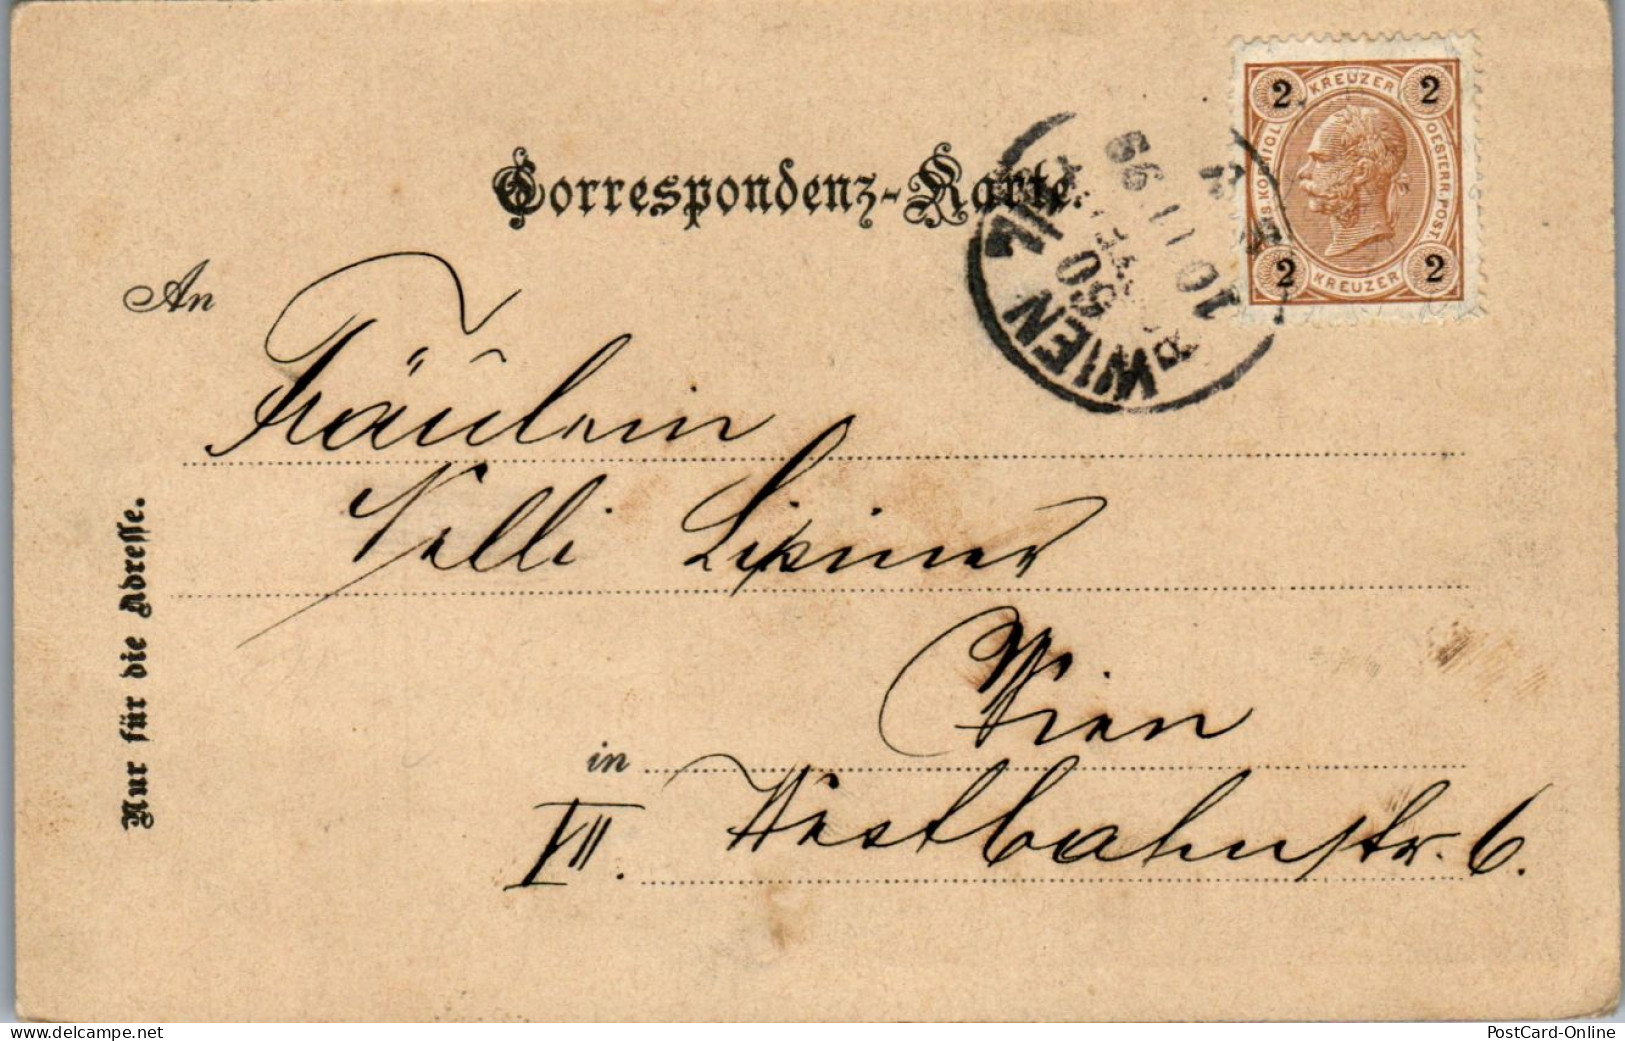 Correspondenz-Karte.
2 KREUZER 2
KAIS. KÖNIGL. OESTERR. POST
2 KREUZER 2
WIEN
10 11 99
An
Fräulein
Nelli
in Wien
VII. Westbahnstr. 6.
Nur für die Adresse.
www.delcampe.net
PostCard-Online